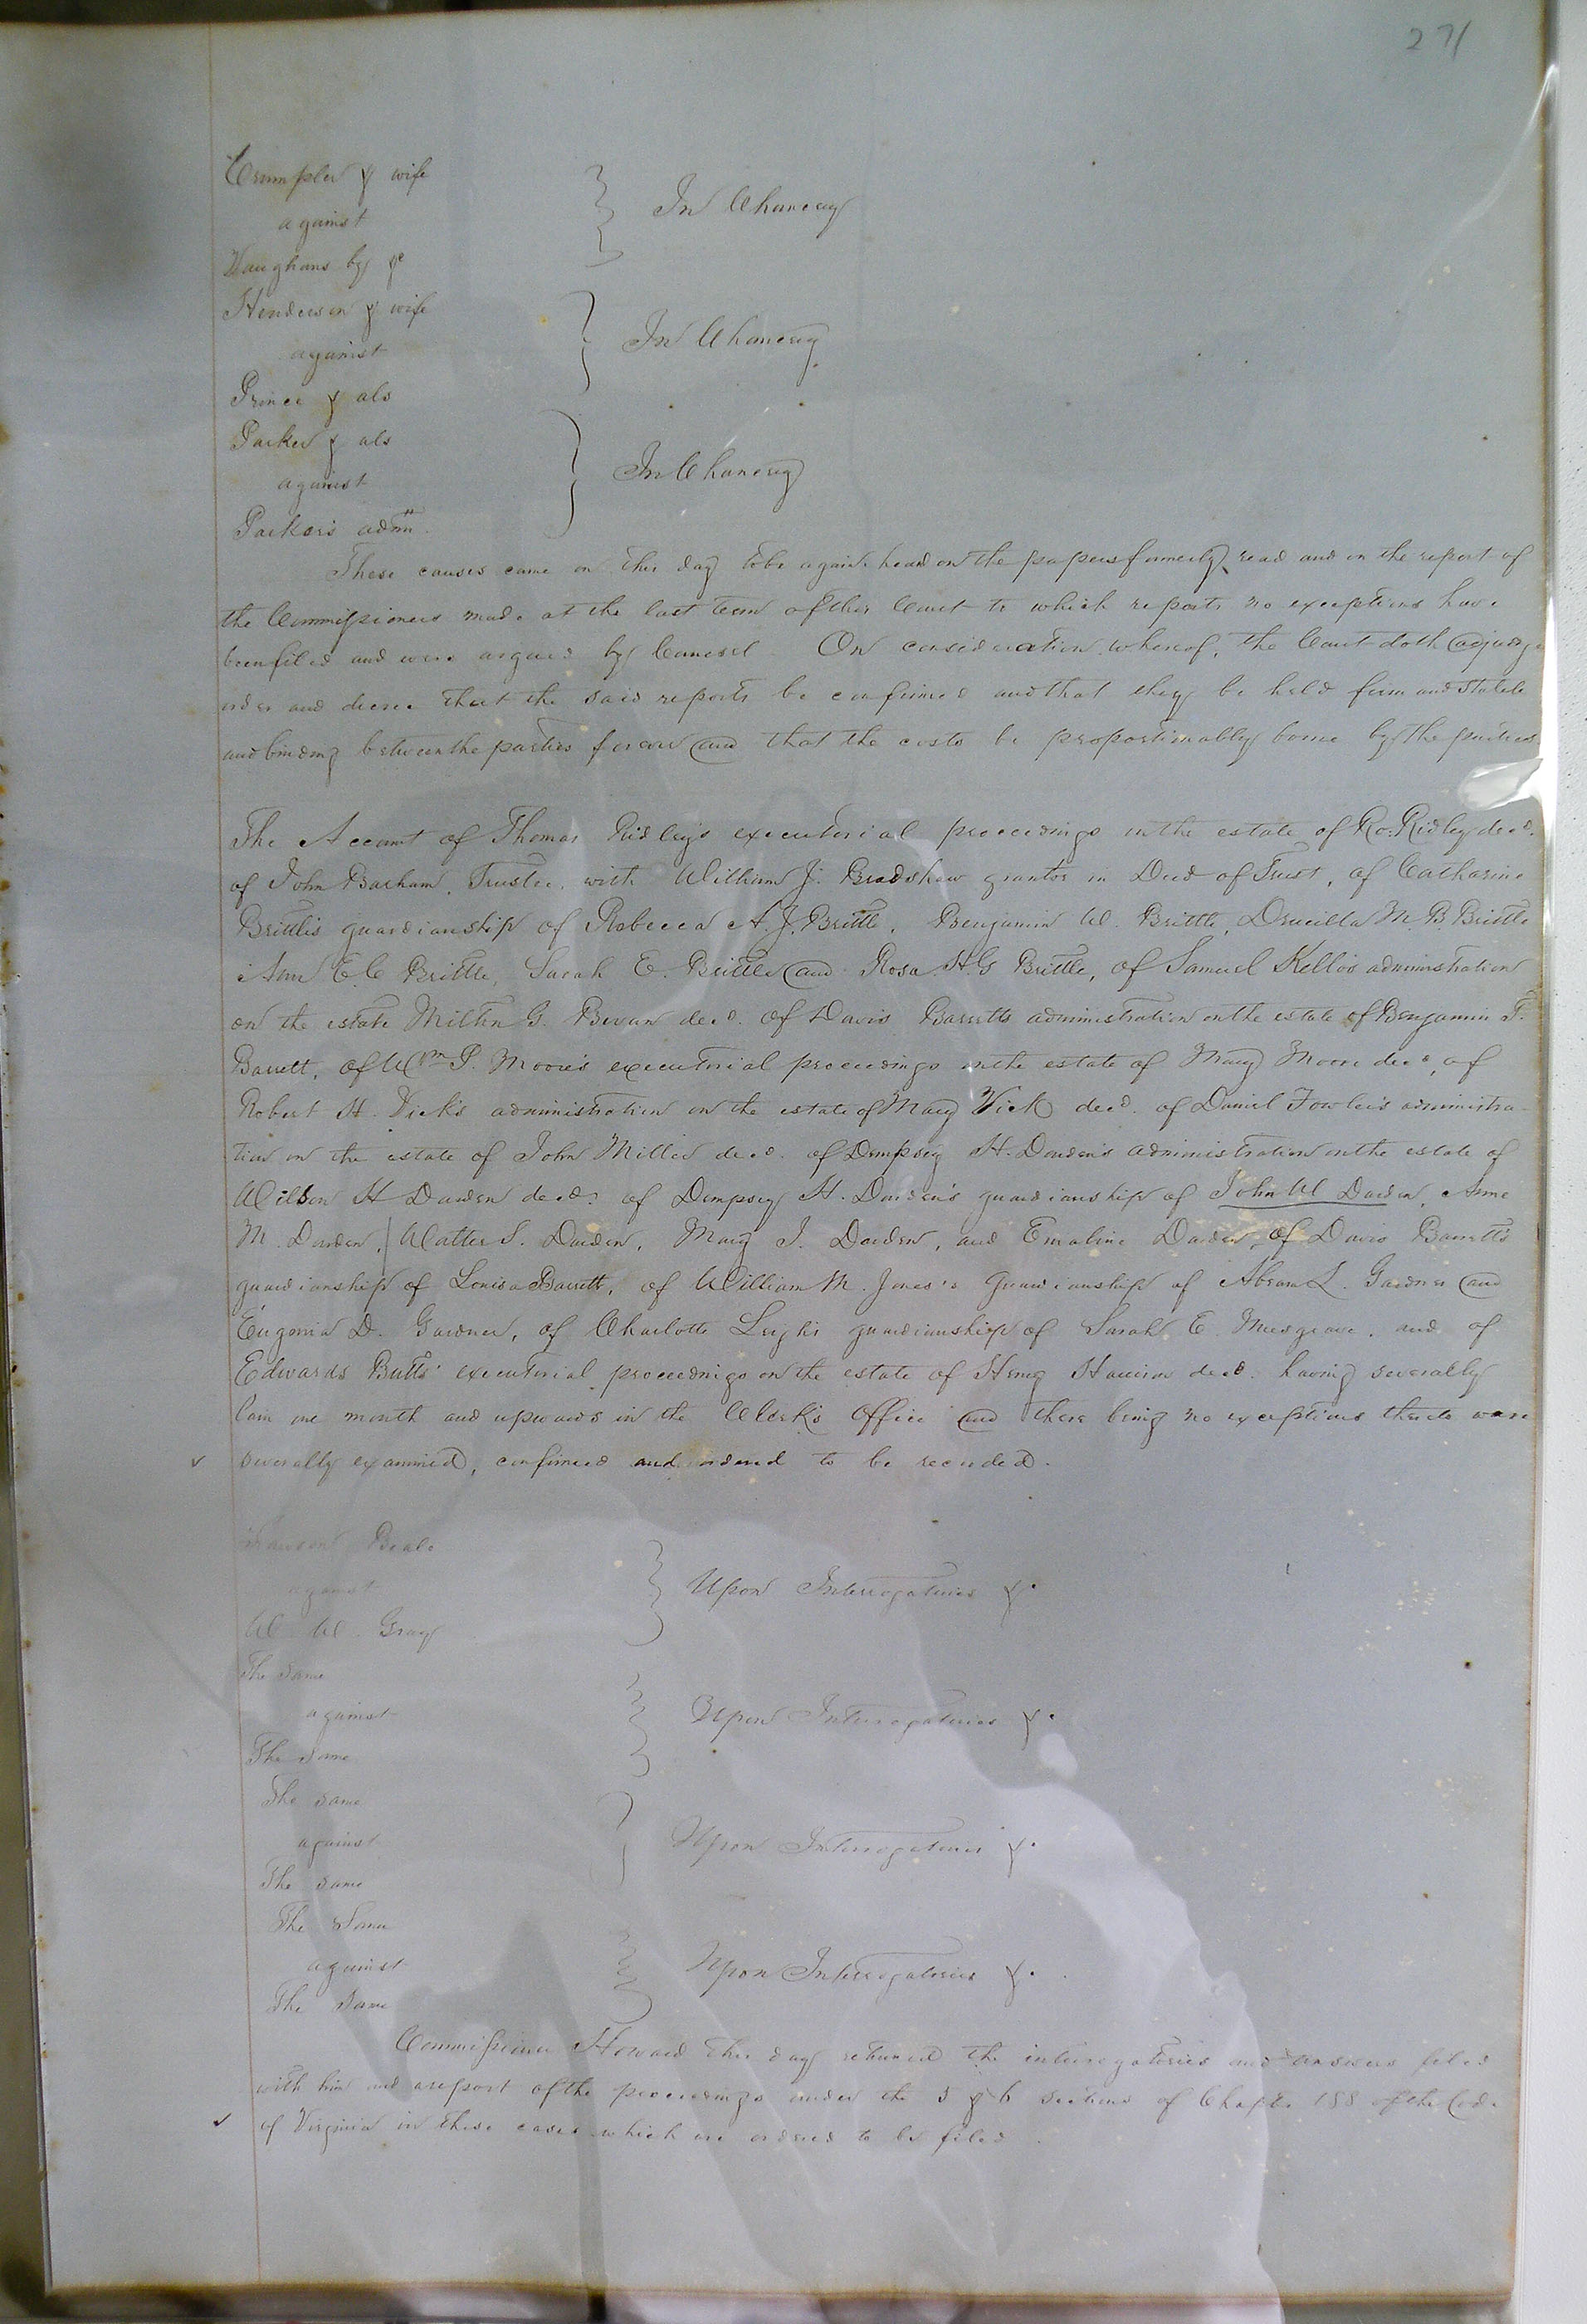 271
Crumpler & wife
against
Vaughans by &c
In Chancery
Henderson & wife
against
Prince & als
In Chancery
Parker & als
against
Parker's admr.
In Chancery
These causes came on this day to be again heard on the papers formerly read and on the report of
the Commissioners made at the last term of this Court to which reports no exceptions have
been filed and were argued by Counsel On consideration whereof, the Court doth adjudge
order and decree that the said reports be confirmed and that they be held firm and stable
and binding between the parties forever and that the costs be proportionably borne by the parties
The Account of Thomas Ridley's executorial proceedings in the estate of Ro: Ridley decd.
of John Barham, Trustee, with William J. Bradshaw grantor in Deed of Trust, of Catharine
Brittle's guardianship of Rebecca A. J. Brittle, Benjamin W. Brittle, Drucilla M. B. Brittle
Ann E. C Brittle, Sarah E. Brittle and Rosa H. G Brittle, of Samuel Kello's administration
on the estate Milton G. Bevan decd. of Davis Barretts administration on the estate of Benjamin F.
Barrett, of Wm P. Moore's executorial proceedings on the estate of Mary Moore decd, of
Robert H. Vick's administration on the estate of Mary Vick decd. of Daniel Fowler's administra-
tion on the estate of John Miller decd. of Dempsey H. Darden's administration on the estate of
Wilson H Darden decd: of Dempsey H. Darden's guardianship of John W Darden, Anne
M. Darden, Walter S. Darden, Mary J. Darden, and Emaline Darden, of Davis Barrett's
guardianship of Louisa Barrett, of William M. Jones's Guardianship of Abram L. Gardner and
Eugenia D. Gardner, of Charlotte Leigh's guardianship of Sarah E. Musgrave, and of
Edwards Butts' executorial proceedings on the estate of Henry Harrison decd. having severally
lain one month and upwards in the Clerk's Office and there being no exceptions thereto were
severally examined, confirmed and ordered to be recorded.
Beale
against
W W. Gray
Upon Interrogatories &.
The Same
against
The Same
Upon Interrogatories &.
The Same
against
The Same
Upon Interrogatories &.
The Same
against
The Same
Upon Interrogatories &.
Commissioner Howard this day returned the interrogatories and answers filed
with him and a report of the proceedings under the 5 & 6 sections of Chapte. 188 of the Code
of Virginia in these cases which are ordered to be filed.